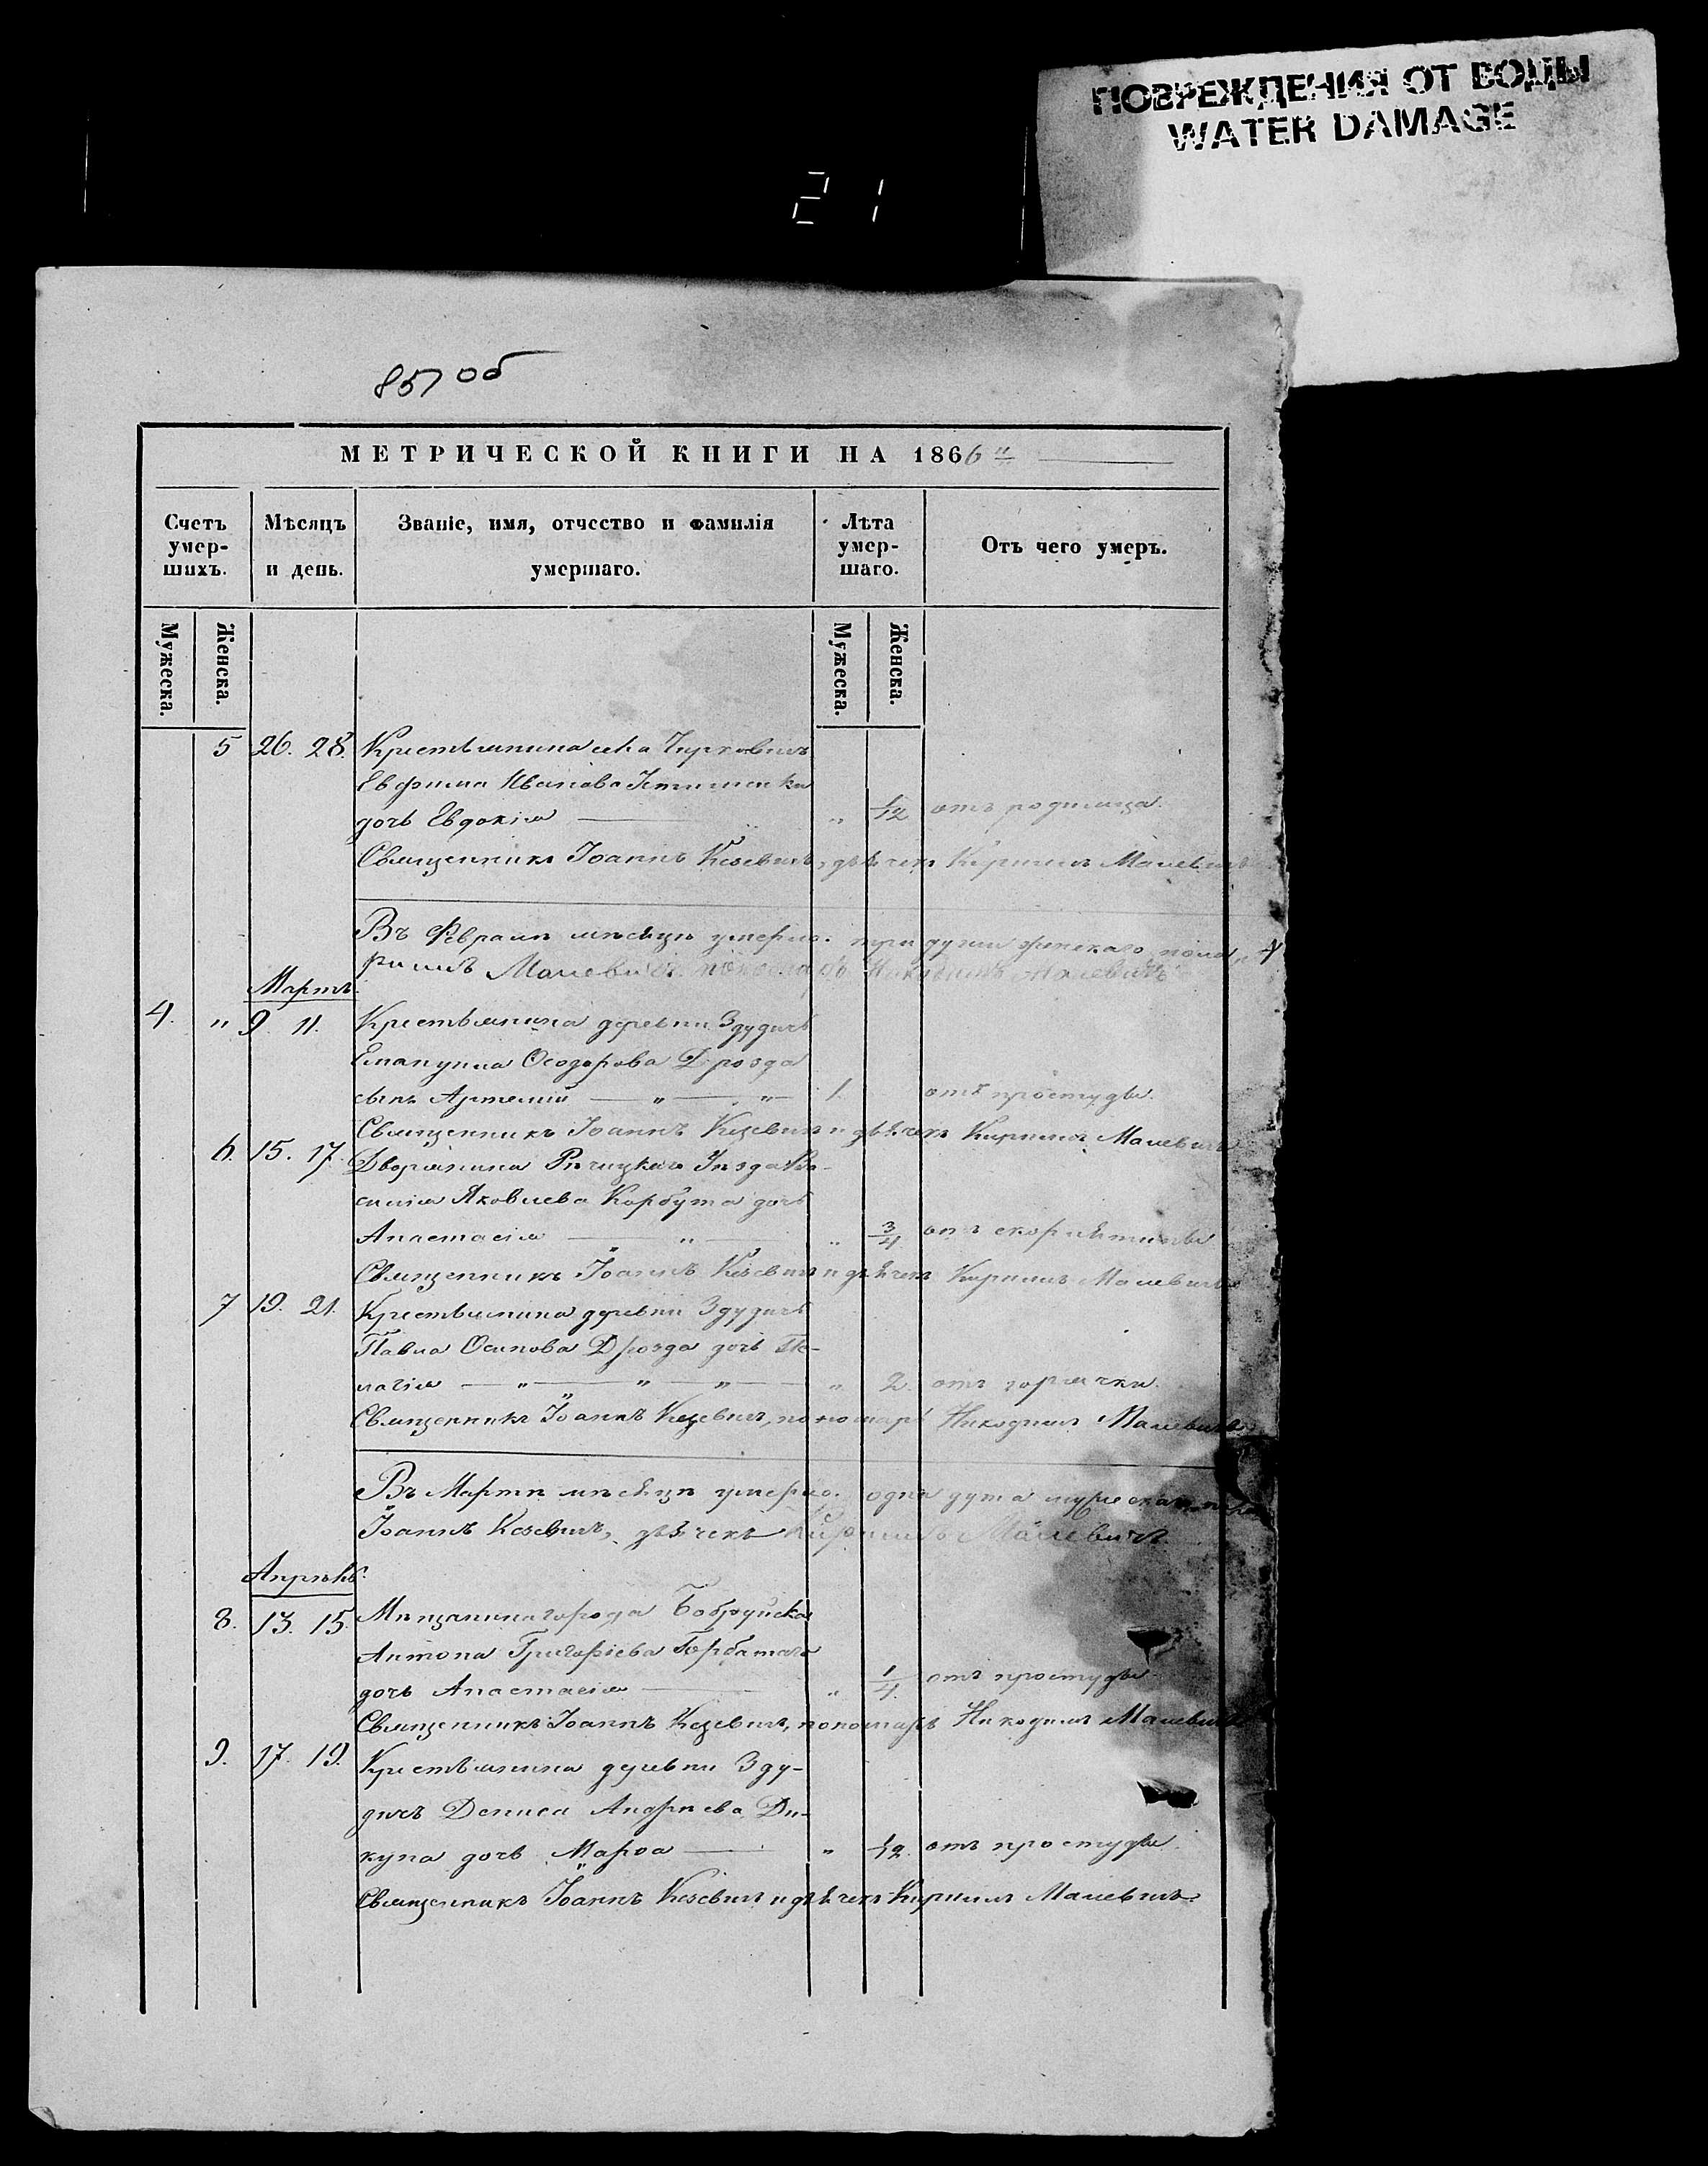 ПОВРЕЖДЕНИЯ ОТ ВОДЫ
WATER DAMAGE
21
85 об
МЕТРИЧЕСКОЙ КНИГИ НА 1866
Счетъ умер-шихъ.
Мѣсяцъ и день.
Званіе, имя, отчество и фамилія умершаго.
Лѣта умер-шаго.
Отъ чего умеръ.
Мужеска.
Женска.
Мужеска.
Женска.
5 26. 28. Крестьянина села
Евфима Иванова
дочь Евдокія " 1/12 отъ родимца.
Священникъ Іоаннъ Кезевичъ, дьячекъ Кириллъ Малевичъ
Въ Февралѣ мѣсяцѣ умерло три души женскаго пола
риллъ Малевичъ пономарь Никодимъ Малевичъ
Мартъ.
4. " 9. 11. Крестьянина деревни Здудичъ
Емануила Ѳеодорова Дрозда
сынъ Артемій " " 1. отъ простуды.
Священникъ Іоаннъ Кезевичъ и дьячекъ Кириллъ Малевичъ
6. 15. 17. Дворянина Рѣчицкаго Уѣзда Ва-
силія Яковлева Корбута дочь
Анастасія " " 3/4 отъ скорлатины
Священникъ Іоаннъ Кезевичъ и дьячекъ Кириллъ Малевичъ
7 19. 21. Крестьянина деревни Здудичъ
Павла Осипова Дрозда дочь Пе-
лагія " " " " 2. отъ горячки.
Священникъ Іоаннъ Кезевичъ, пономарь Никодимъ Малевичъ
Въ Мартѣ мѣсяцѣ умерло одна душа мужеска
Іоаннъ Кезевичъ, дьячекъ Кириллъ Малевичъ
Апрѣль.
8. 13. 15. Мѣщанина города Бобруйска
Антона Григорьева Горбатаго
дочь Анастасія " 1/4. отъ простуды
Священникъ Іоаннъ Кезевичъ, пономарь Никодимъ Малевичъ
9. 17. 19. Крестьянина деревни Зду-
дичъ Дениса Андреева Ди-
куна дочь Марѳа " 1/12. отъ простуды.
Священникъ Іоаннъ Кезевичъ и дьячекъ Кириллъ Малевичъ